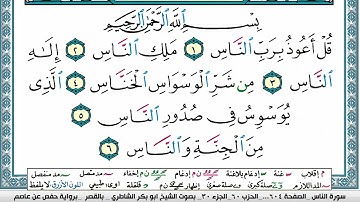 بِسْمِ ٱللَّهِ ٱلرَّحْمَٰنِ ٱلرَّحِيمِ
قُلْ أَعُوذُ بِرَبِّ ٱلنَّاسِ ١ مَلِكِ ٱلنَّاسِ ٢ إِلَٰهِ
ٱلنَّاسِ ٣ مِن شَرِّ ٱلْوَسْوَاسِ ٱلْخَنَّاسِ ٤ ٱلَّذِى
يُوَسْوِسُ فِى صُدُورِ ٱلنَّاسِ ٥
مِنَ ٱلْجِنَّةِ وَٱلنَّاسِ ٦
سورة الناس الصفحة ٦٠٤ الحزب ٦٠ الجزء ٣٠ بصوت الشيخ ابو بكر الشاطري بالقصر رواية حفص عن عاصم